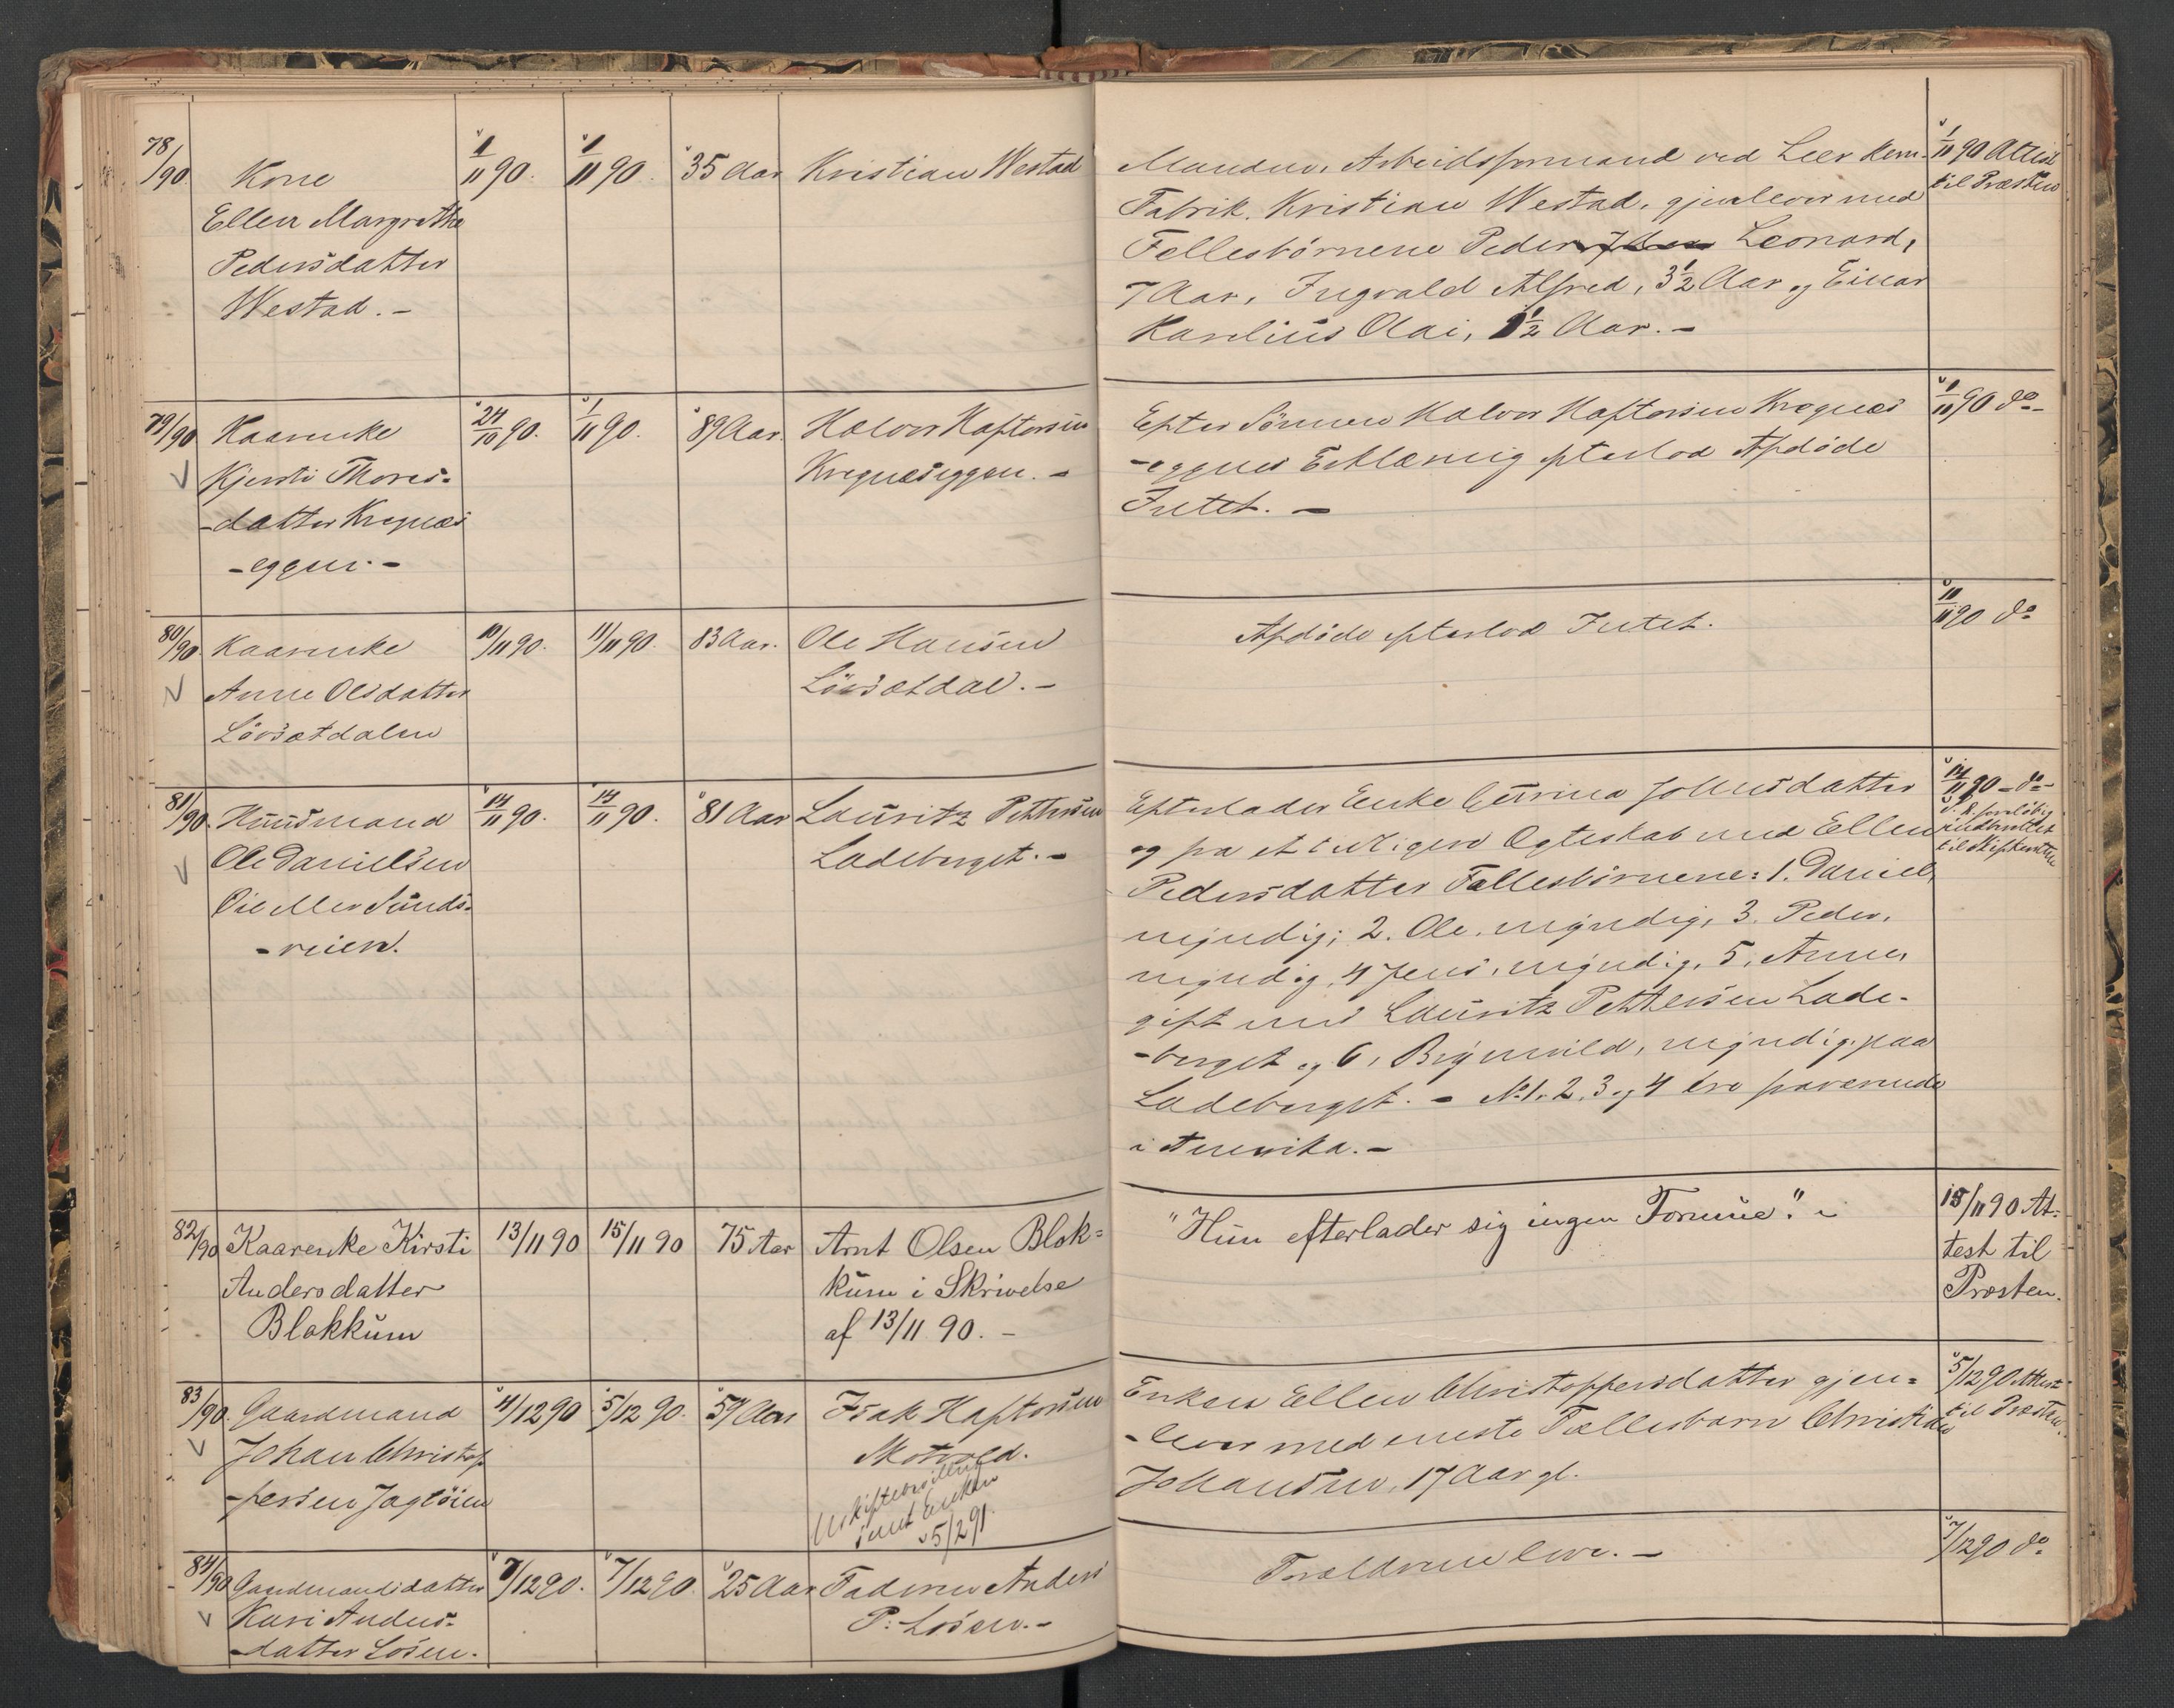 78/90
Kone
Ellen Margrethe
Pedersdatter
Westad. -
1/11 90.
1/11 90.
35 Aar
Kristian Westad
Manden, Arbeidsformand ved Leer
Fabrik, Kristian Westad, gjenlever med
Fellesbörnene Peder Leonard,
7 Aar, Ingvald Alfred, 3 1/2 Aar og Einar
Karelius Olai, 1/2 Aar. -
1/11 90 Attest
til Præsten
79/90
Kaarenke
Kjersti Thores-
-datter Kregnæs
-eggen. -
24/10 90.
1/11 90.
89 Aar.
Halvor Haftorsen
Kregnæseggen. -
Efter Sönnen Halvor Haftorsen Kregnæs
-eggens Erklæring efterlod Afdöde
Intet. -
1/11 90 do -
80/90
Kaarenke
Anne Olsdatter
Lövsetdalen
10/11 90.
11/11 90.
83 Aar.
Ole Hansen
Lövsetdal. -
Afdöde efterlod Intet.
11/11 90 do
81/90
Huusmand
Ole Danielsen
Öie eller Sunds-
-reien.
14/11 90.
14/11 90.
81 Aar
Lauritz Pettersen
Ladeberget. -
Efterlader Enke Gurina Johnsdatter
og fra et tidligere Ægteskab med Ellen
Pedersdatter Fællesbörnene: 1. Daniel,
myndig; 2. Ole, myndig, 3. Peder,
myndig, 4 Jens, myndig, 5. Anne,
gift med Lauritz Pettersen Lade-
-berget og 6, Brynnild, myndig, paa
Ladeberget. - No 1, 2, 3 og 4 ere fraværende
i Amerika. -
14/11 90 - do -
forlöbig
indberettet
til Skifteretten
82/90
Kaarenke Kirsti
Andersdatter
Blokkum
13/11 90
15/11 90
75 Aar
Arnt Olsen Blok=
kum i Skrivelse
af 13/11 90. -
"Hun efterlader sig ingen Formue." -
15/11 90 At=
test til
Præsten.
83/90.
Gaardmand
Johan Christof
-fersen Jagtöien
4/12 90
5/12 90.
59 Aar
Isak Haftorsen
Motvold.
Uskiftebevilling
sendt Enken
5/2 91.
Enken Ellen Christoffersdatter gjen=
-lever med eneste Fællesbarn Christian
Johansen, 17 Aar gl.
5/12 90 Attest
til Præsten.
84/90
Gaardmandsdatter
Kari Anders-
-datter Losen.
7/12 90.
7/12 90
25 Aar
Faderen Anders
P. Losen. -
Forældrene leve. -
7/12 90 do